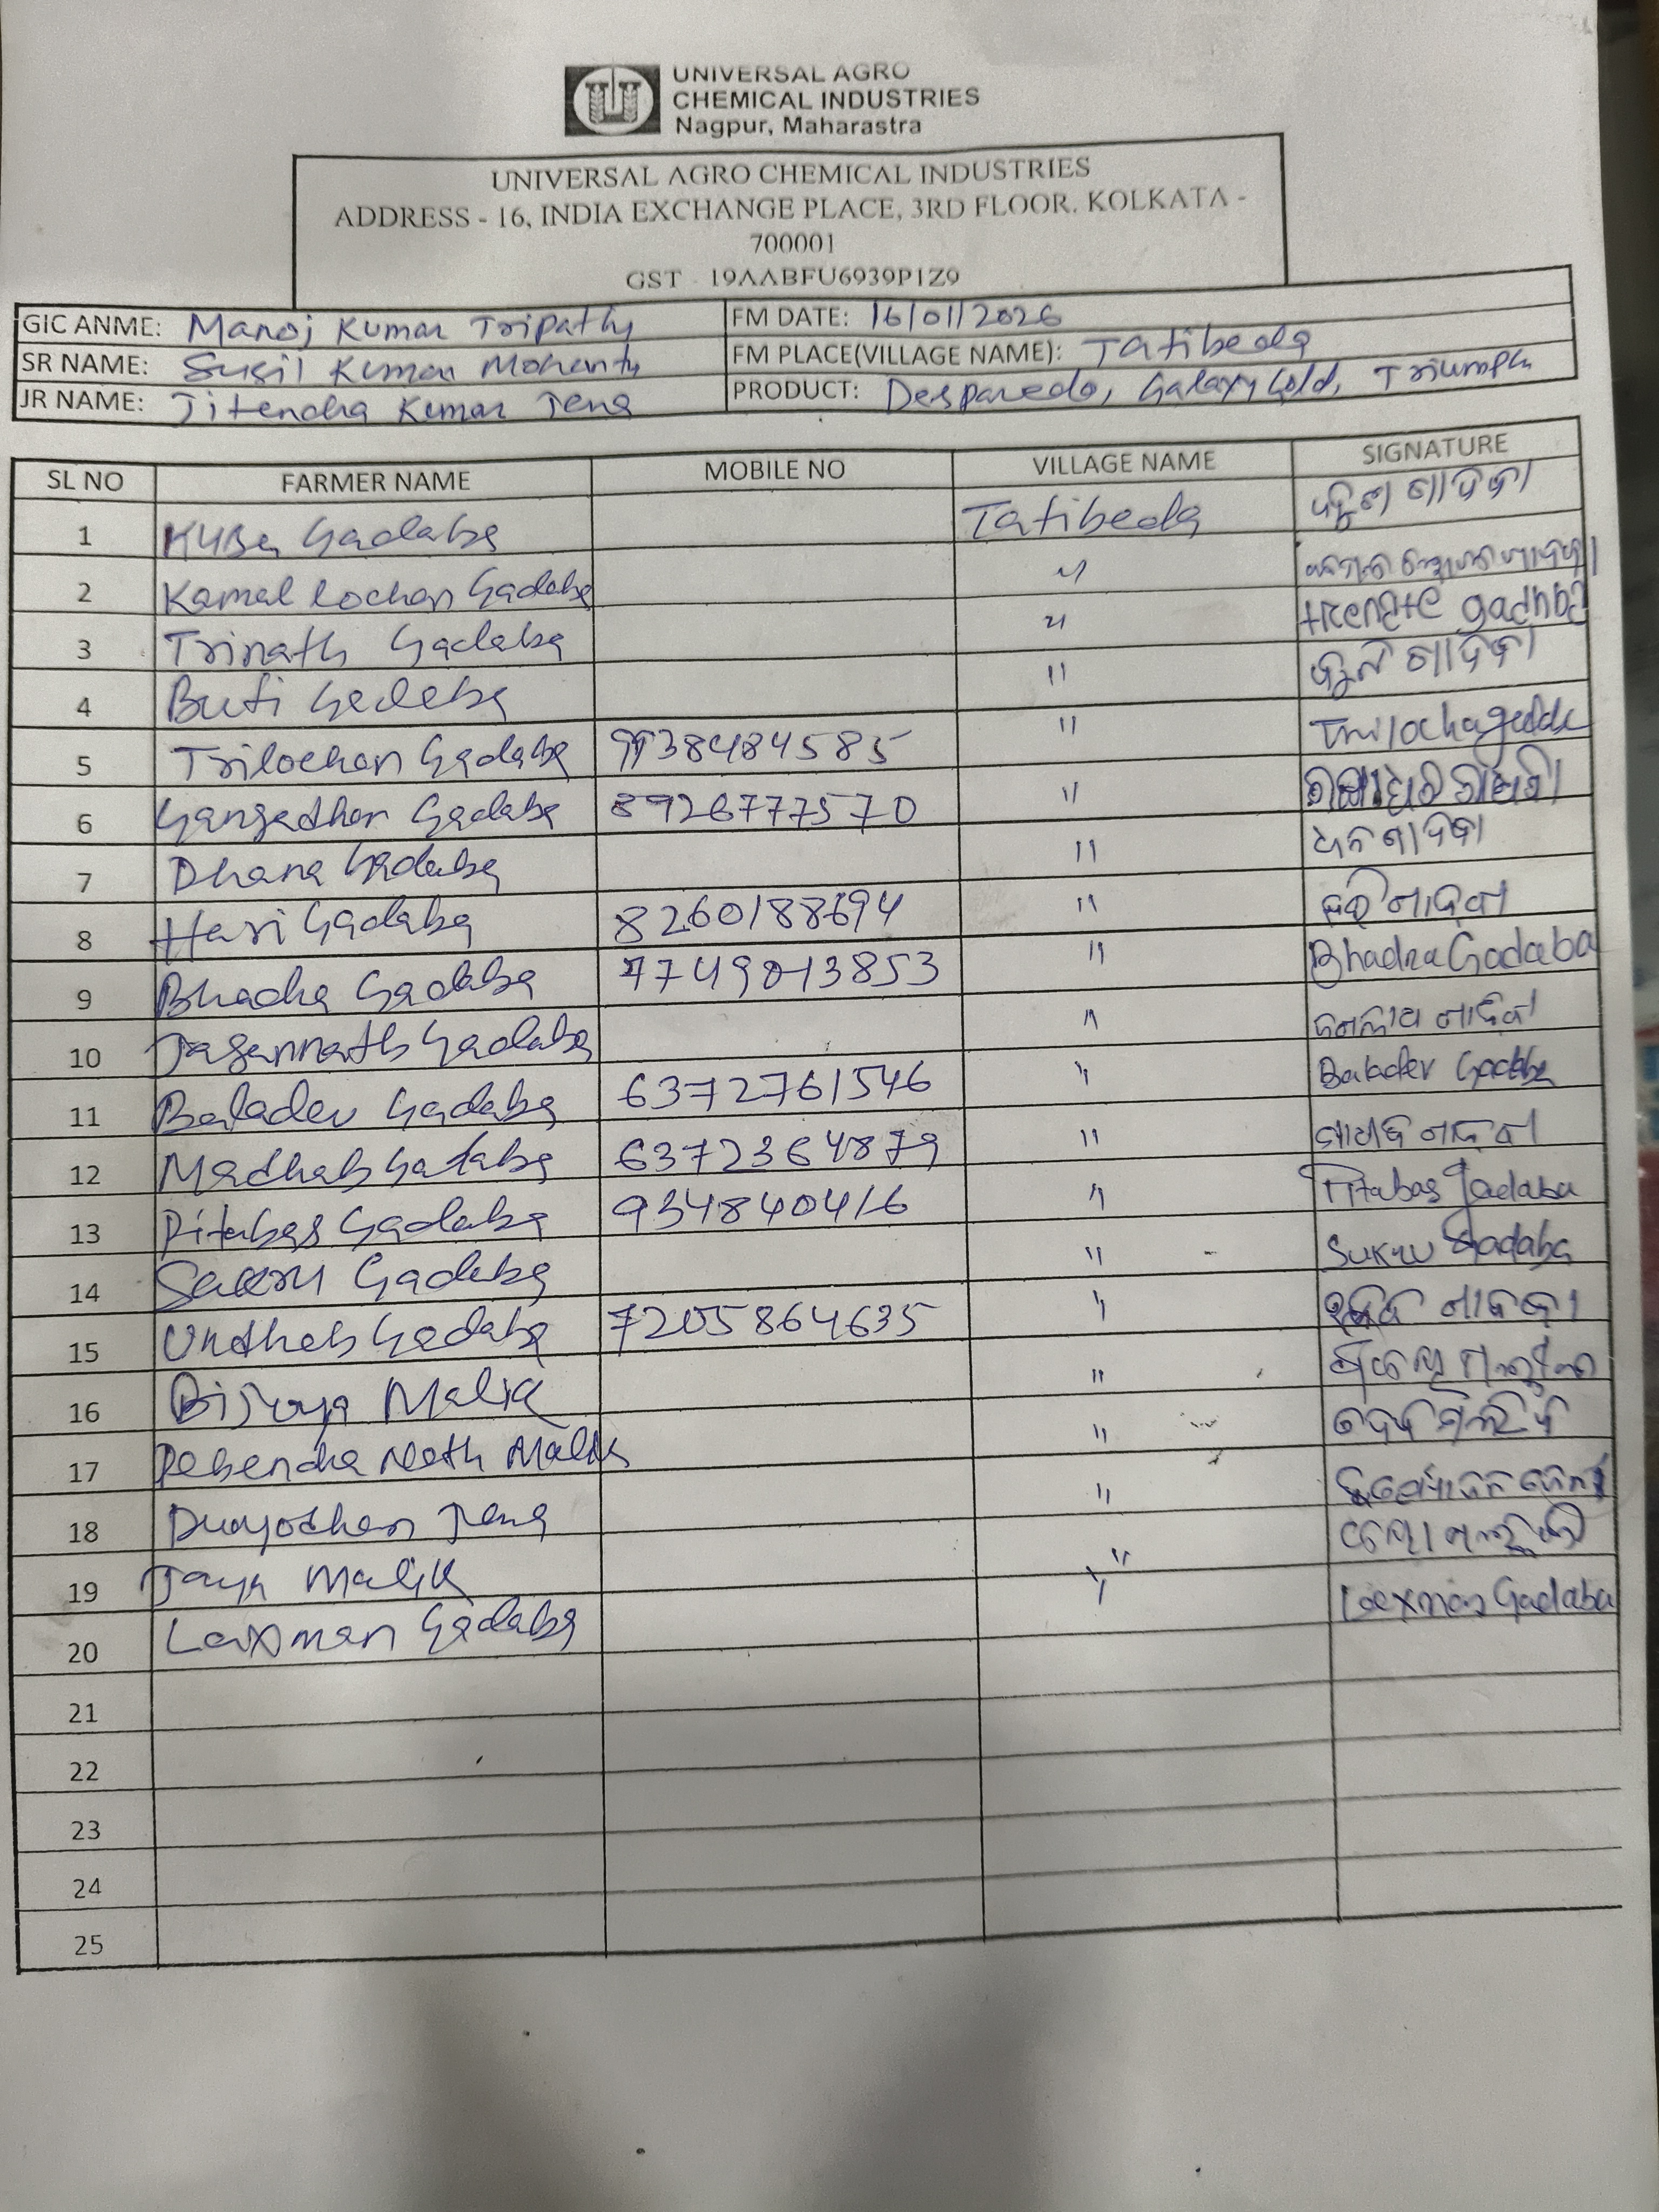 UNIVERSAL AGRO
CHEMICAL INDUSTRIES
Nagpur, Maharastra
UNIVERSAL AGRO CHEMICAL INDUSTRIES
ADDRESS - 16, INDIA EXCHANGE PLACE, 3RD FLOOR, KOLKATA -
700001
GST - 19AABFU6939P1Z9
GIC ANME: Manoj Kumar Tripathy FM DATE: 16/01/2026
SR NAME: Susil Kumar Mohanty FM PLACE(VILLAGE NAME): Tatibeda
JR NAME: Jitendra Kumar Jena PRODUCT: Desparedo, Galaxy Gold, Triumph
SL NO FARMER NAME MOBILE NO VILLAGE NAME SIGNATURE
1 Kuba Gadaba Tatibeda
2 Kamal lochan Gadaba "
3 Trinath Gadaba "
4 Buti Gadaba "
5 Trilochan Gadaba "
6 Gangadhar Gadaba 8926777570 "
7 Dhana Gadaba " ଧନ ଗାଦବା
8 Hari Gadaba 8260188694 " ହରି ଗାଦବା
9 Bhadra Gadaba 7749013853 " Bhadra Gadaba
10 Jagannath Gadaba "
11 Baladev Gadaba 6372761546 " Baladev Gadaba
12 Madhab Gadaba 6372364879 "
13 Pitabas Gadaba 934840416 " Pitabas Gadaba
14 Sukru Gadaba " Sukru Gadaba
15 Gadaba 7205864635 "
16 Bijaya Malik "
17 Debendra Nath Malik "
18 Duryodhan Jena "
19 Jaya Malik "
20 Laxman Gadaba " Laxman Gadaba
21
22
23
24
25